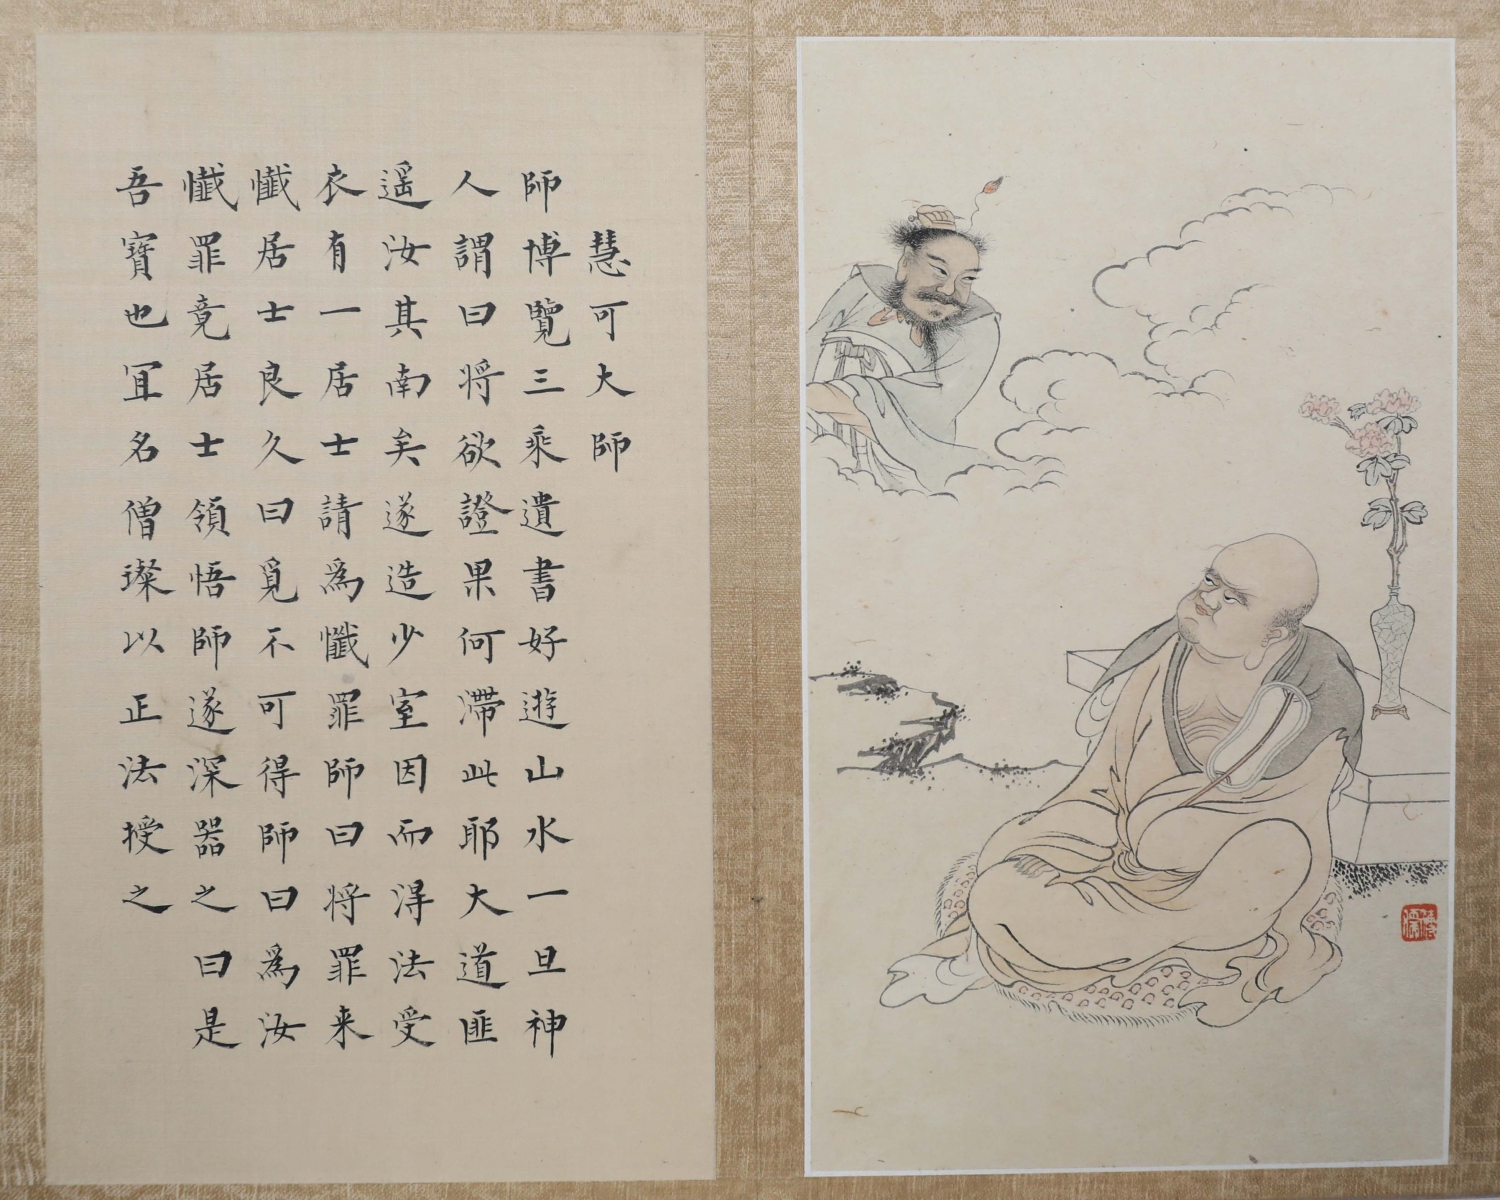 慧可大師
師博覽三乘遺書好遊山水一旦神
人謂曰將欲證果何滯此耶大道匪
遥汝其南矣遂造少室因而得法受
衣有一居士請爲懺罪師曰將罪来
懺居士良久曰覓不可得師曰爲汝
懺罪竟居士領悟師遂深器之曰是
吾寶也冝名僧璨以正法授之